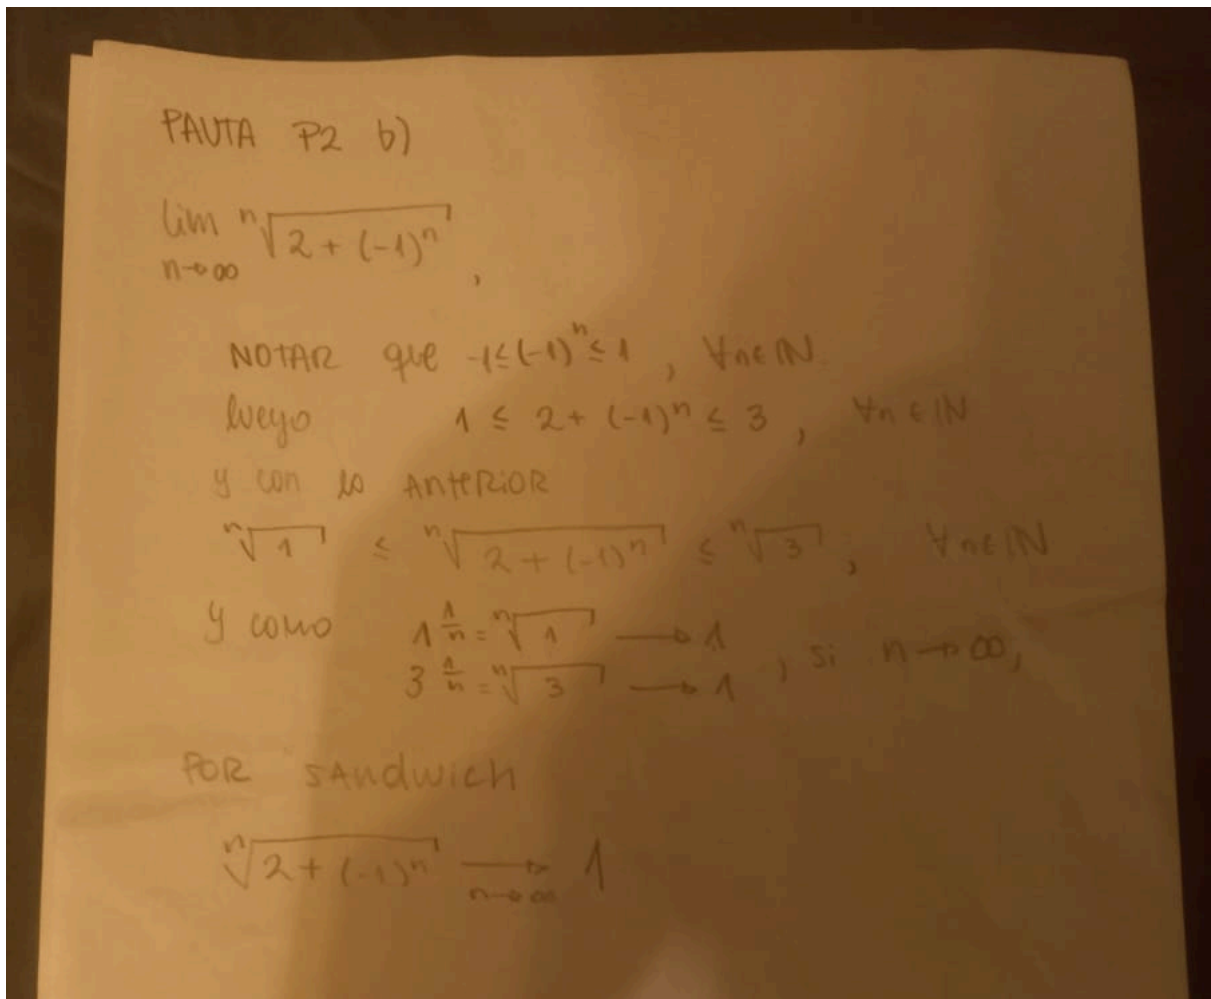 PAUTA P2 b)
lim n→∞ ⁿ√(2 + (-1)ⁿ) ,
NOTAR que -1≤(-1)ⁿ≤1 , ∀n∈ℕ.
luego 1 ≤ 2 + (-1)ⁿ ≤ 3 , ∀n∈ℕ
y con lo ANTERIOR
ⁿ√1 ≤ ⁿ√(2 + (-1)ⁿ) ≤ ⁿ√3 , ∀n∈ℕ
y como 1^(1/n) = ⁿ√1 → 1
3^(1/n) = ⁿ√3 → 1 , si n→∞,
POR SANDWICH
ⁿ√(2 + (-1)ⁿ) →_(n→∞) 1